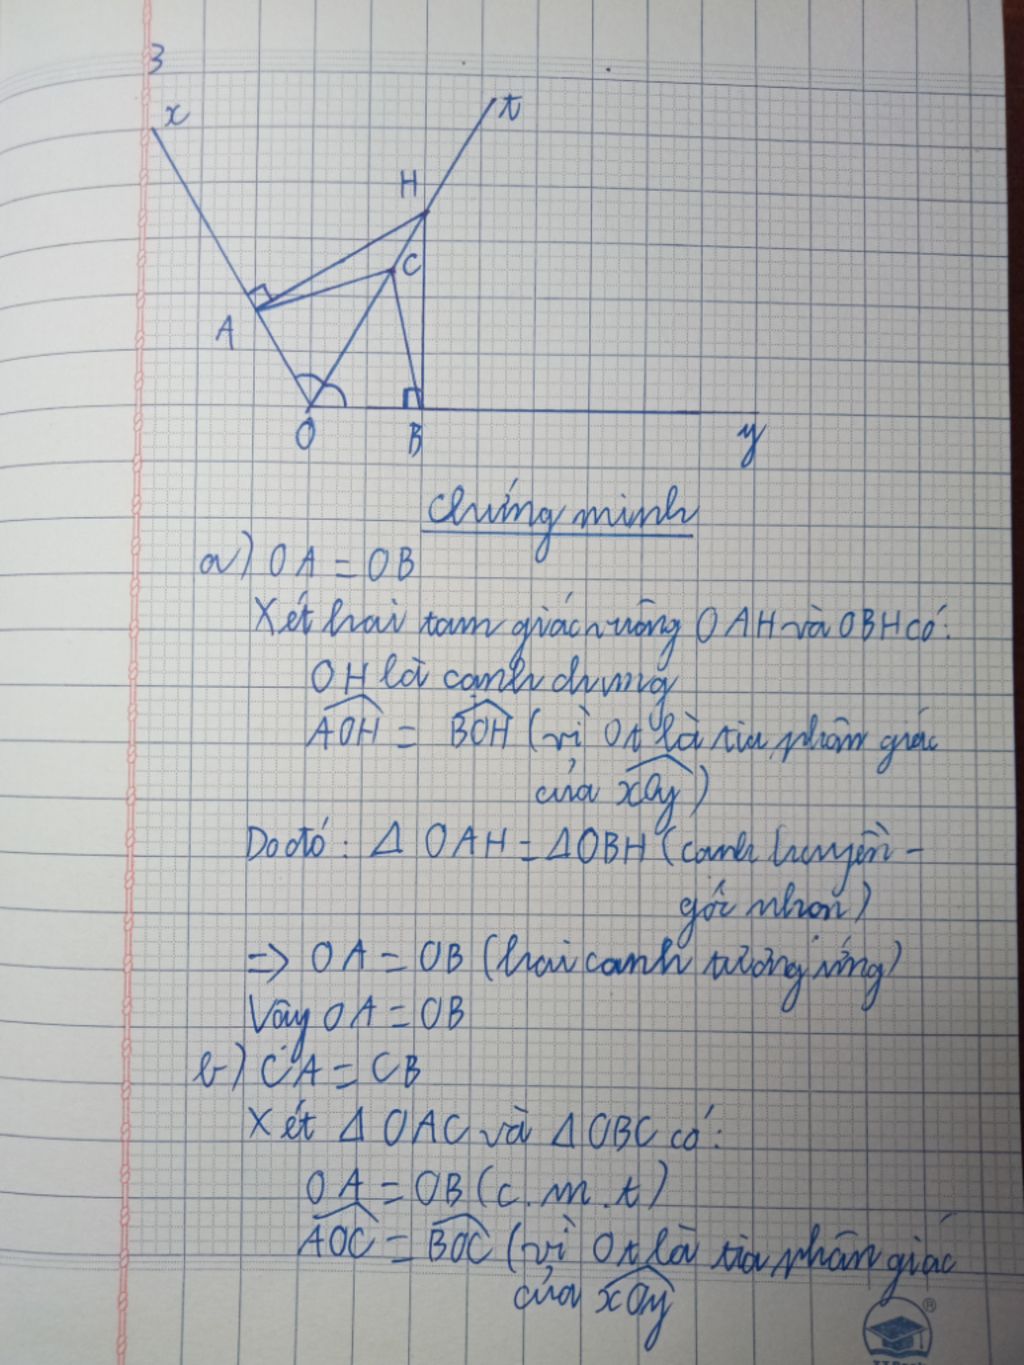 3
x
t
H
C
A
O
B
y
Chứng minh
a) OA = OB
Xét hai tam giác vuông OAH và OBH có:
OH là cạnh chung
AOH = BOH (vì Ot là tia phân giác
của xOy)
Do đó: Δ OAH = ΔOBH (cạnh huyền -
góc nhọn)
=> OA = OB (hai cạnh tương ứng)
Vậy OA = OB
b) CA = CB
Xét Δ OAC và Δ OBC có:
OA = OB (c.m.t)
AOC = BOC (vì Ot là tia phân giác
của xOy